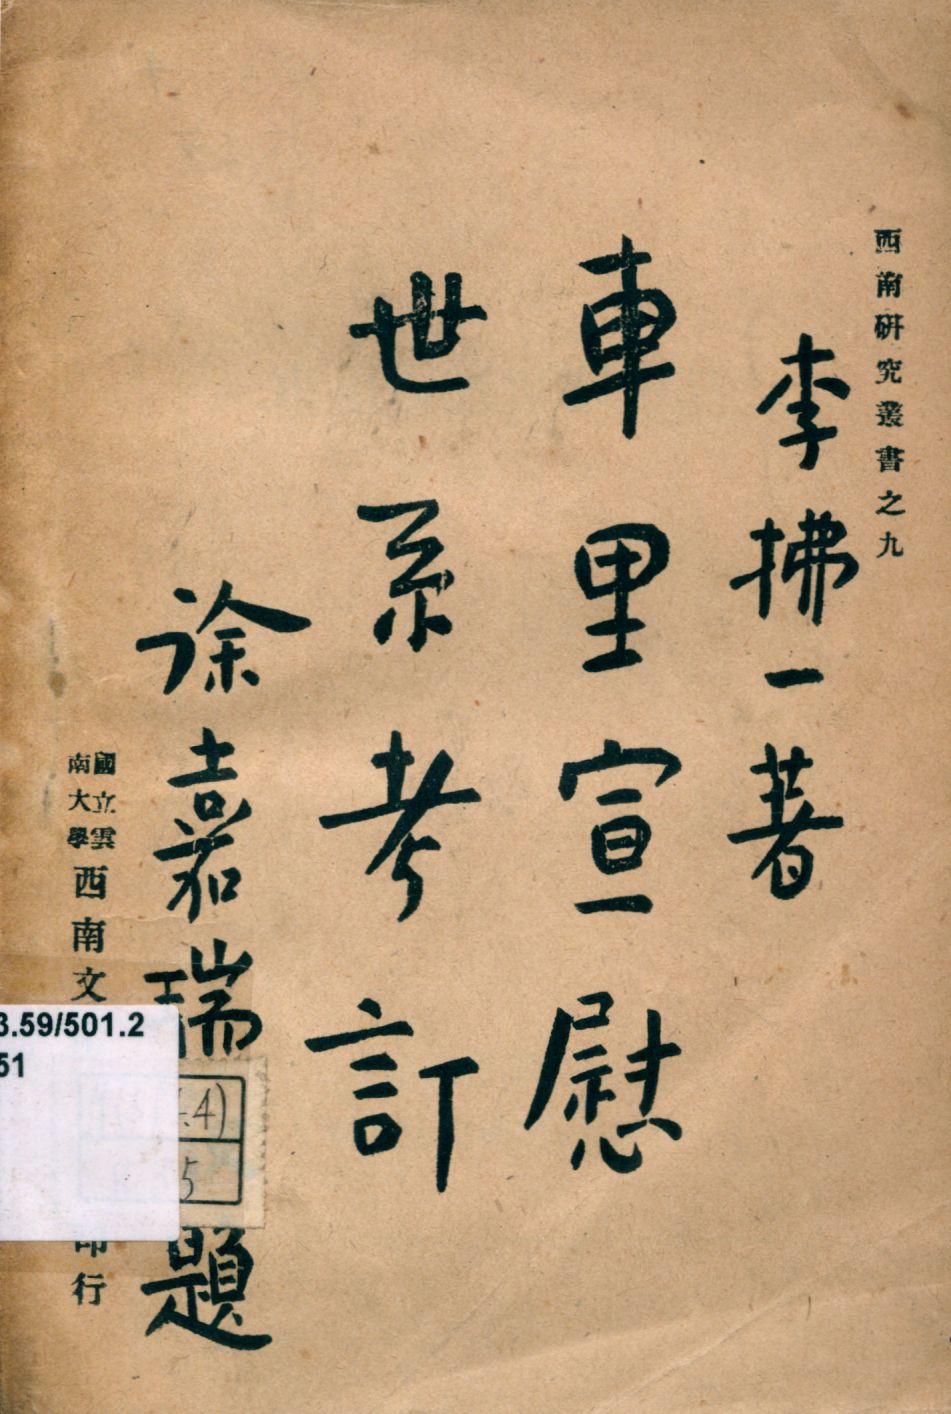 西南研究叢書之九
李拂一著
車里宣慰
世系考訂
徐嘉瑞題
國立雲
南大學
西南文
印行
3.59/501.2
51
.4)
5